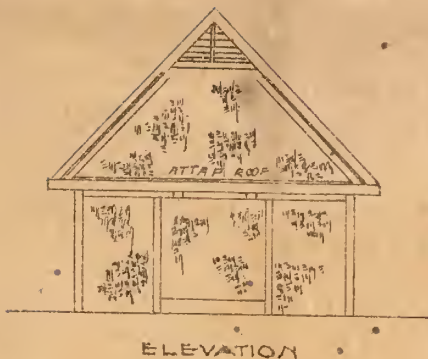 ATTAP ROOF
ELEVATION